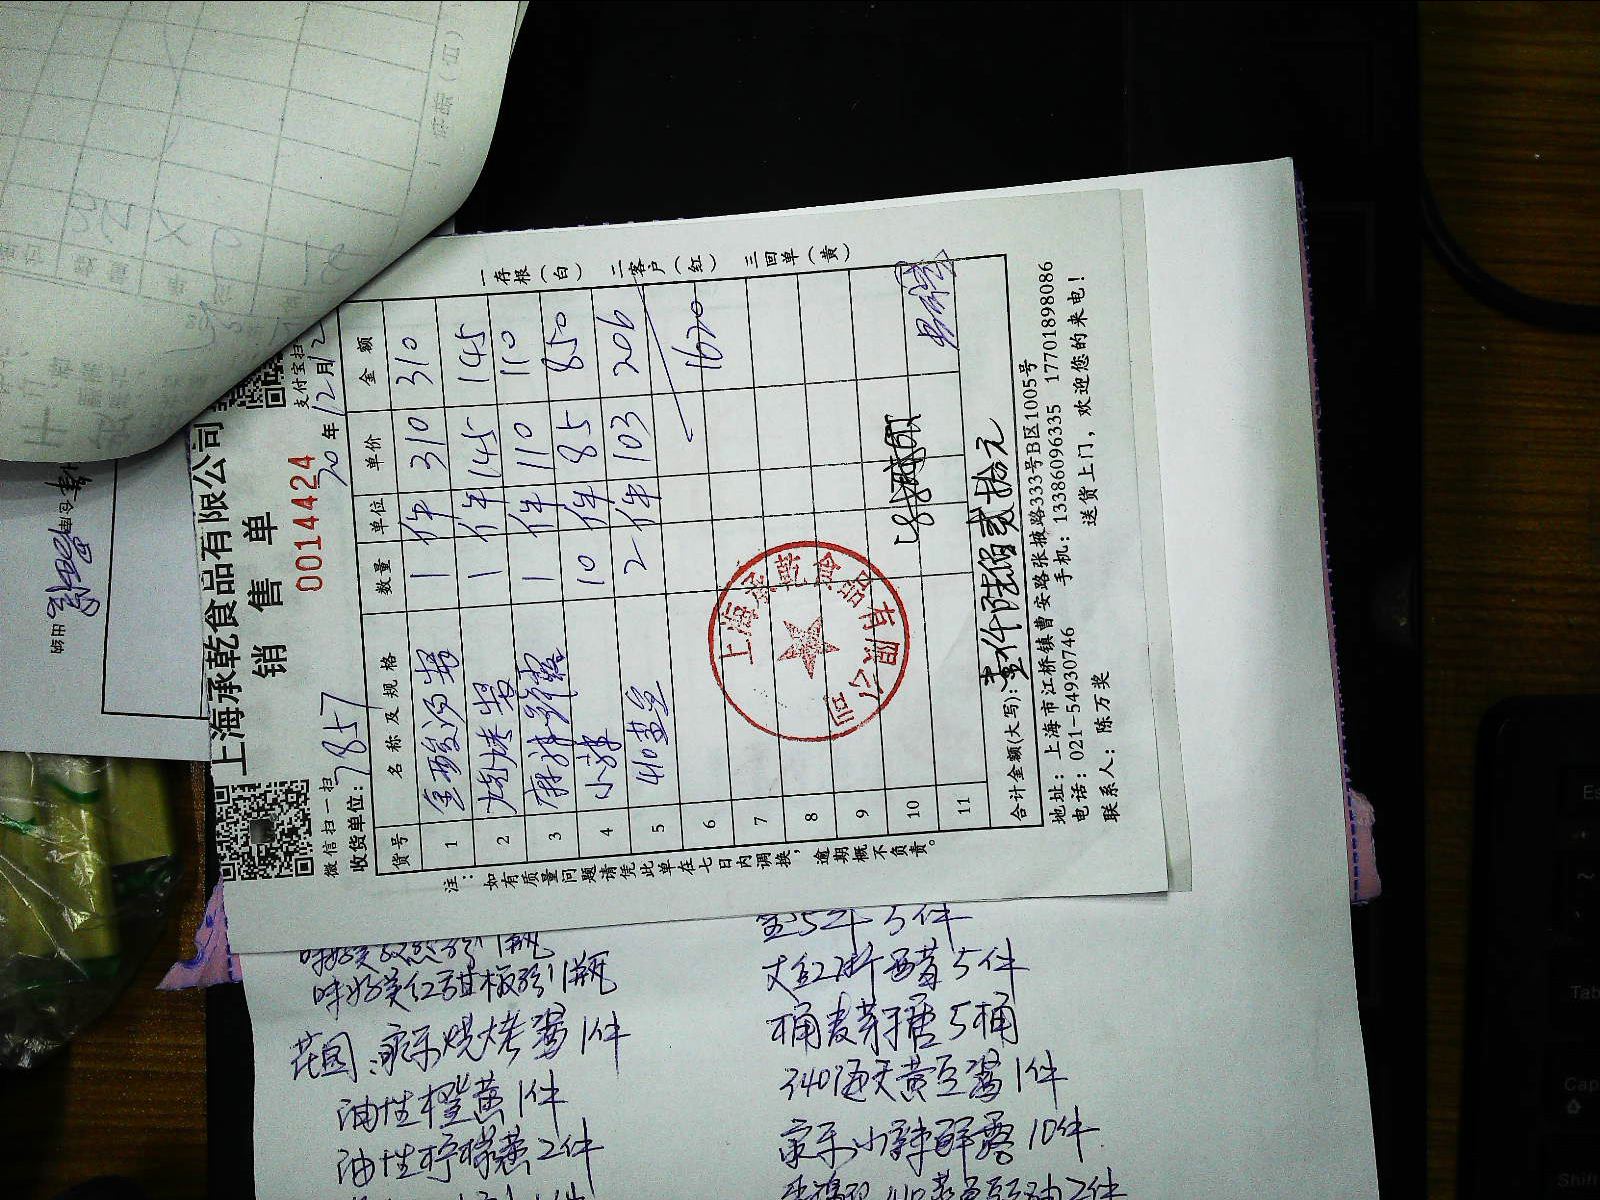 上海承乾食品有限公司
销 售 单
0014424
微信扫一扫
支付宝扫
收货单位: 7857
20年12月12
货号 名称及规格 数量 单位 单价 金额
1 1 件 310 310
2 烧烤酱 1 件 145 145
3 麻辣鲜露 1 件 110 110
4 小辣 10 件 85 850
5 410 2 件 103 206
6 1620
7
8
9
10
11
合计金额(大写): 壹仟陆佰贰拾元
地址: 上海市江桥镇曹安路张掖路333号B区1005号
电话: 021-54930746 手机: 13386096335 17701898086
联系人: 陈万奖 送货上门,欢迎您的来电!
注: 如有质量问题请凭此单在七日内调换, 逾期概不负责。
一存根(白) 二客户(红) 三回单(黄)
上海承乾食品有限公司
味好美红甜椒粉1瓶
花园 家乐烧烤酱1件
油性橙黄1件
油性柠檬黄2件
大红浙醋5件
桶麦芽糖5桶
340海天黄豆酱1件
家乐小辣鲜露10件
Tab
Cap
Shift